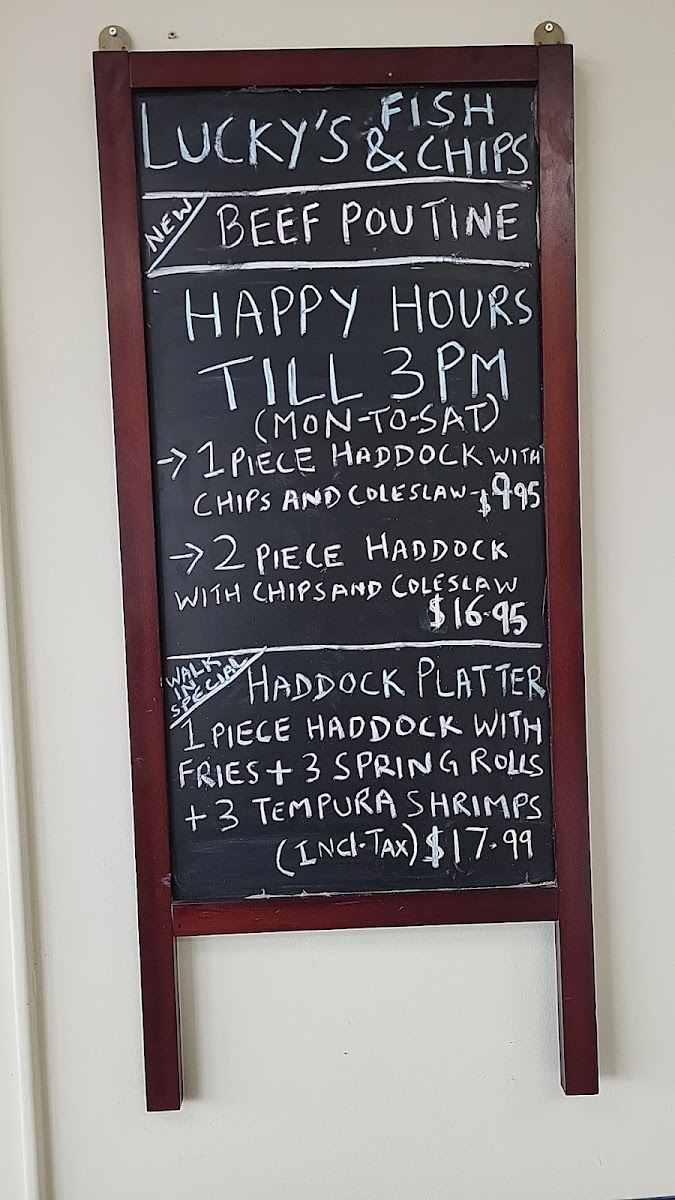 LUCKY'S FISH & CHIPS
NEW BEEF POUTINE
HAPPY HOURS
TILL 3PM
(MON-TO-SAT)
→ 1 PIECE HADDOCK WITH
CHIPS AND COLESLAW - $9.95
→ 2 PIECE HADDOCK
WITH CHIPS AND COLESLAW
$16.95
WALK IN SPECIAL
HADDOCK PLATTER
1 PIECE HADDOCK WITH
FRIES + 3 SPRING ROLLS
+ 3 TEMPURA SHRIMPS
(INCl.TAX) $17.99